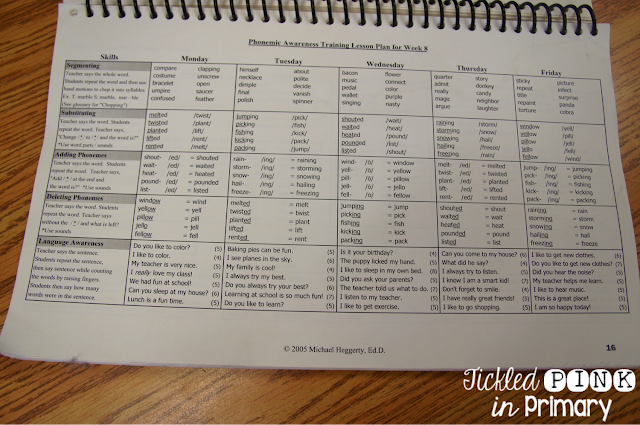 Phonemic Awareness Training Lesson Plan for Week 8
Skills Monday Tuesday Wednesday Thursday Friday
Segmenting
Teacher says the whole word.
Students repeat the word and then use
hand motions to chop it into syllables.
Ex. T: marble S: marble, mar - ble
(See glossary for "Chopping")
compare clapping
costume unscrew
bracelet open
umpire saucer
confused feather
himself about
necklace polite
dimple decide
final vanish
polish spinner
bacon flower
music connect
pedal color
wallet purple
singing nasty
quarter story
admit donkey
really candy
magic neighbor
argue laughter
sticky picture
repeat infect
title surprise
repaint panda
torture cobra
Substituting
Teacher says the word. Students
repeat the word. Teacher says,
*Use word parts / sounds
melted /twist/
twisted /plant/
planted /lift/
lifted /rent/
rented /melt/
jumping /pick/
picking /fish/
fishing /kick/
kicking /pack/
packing /jump/
shouted /wait/
waited /heat/
heated /pound/
pounded /list/
listed /shout/
raining /storm/
storming /snow/
snowing /hail/
hailing /freez/
freezing /rain/
window /yell/
yellow /pill/
pillow /jell/
jello /fell/
fellow /wind/
Adding Phonemes
Teacher says the word. Students
repeat the word. Teacher says,
the word is?" *Use sounds
shout- /ed/ = shouted
wait- /ed/ = waited
heat- /ed/ = heated
pound- /ed/ = pounded
list- /ed/ = listed
rain- /ing/ = raining
storm- /ing/ = storming
snow- /ing/ = snowing
hail- /ing/ = hailing
freeze- /ing/ = freezing
wind- /ō/ = window
yell- /ō/ = yellow
pill- /ō/ = pillow
jell- /ō/ = jello
fell- /ō/ = fellow
melt- /ed/ = melted
twist- /ed/ = twisted
plant- /ed/ = planted
lift- /ed/ = lifted
rent- /ed/ = rented
jump- /ing/ = jumping
pick- /ing/ = picking
fish- /ing/ = fishing
kick- /ing/ = kicking
pack- /ing/ = packing
Deleting Phonemes
Teacher says the word. Students
repeat the word. Teacher says
*Use sounds
window = wind
yellow = yell
pillow = pill
jello = jell
fellow = fell
melted = melt
twisted = twist
planted = plant
lifted = lift
rented = rent
jumping = jump
picking = pick
fishing = fish
kicking = kick
packing = pack
shouted = shout
waited = wait
heated = heat
pounded = pound
listed = list
raining = rain
storming = storm
snowing = snow
hailing = hail
freezing = freeze
Language Awareness
Teacher says the sentence.
Students repeat the sentence,
then say sentence while counting
the words by raising fingers.
Students then say how many
words were in the sentence.
Do you like to color? (5)
I like to color. (4)
My teacher is very nice. (5)
I really love my class! (5)
We had fun at school! (5)
Can you sleep at my house? (6)
Lunch is a fun time. (5)
Baking pies can be fun. (5)
I see planes in the sky. (6)
My family is cool! (4)
I always try my best. (5)
Do you always try your best? (6)
Learning at school is so much fun! (7)
Do you like to learn? (5)
Is it your birthday? (4)
The puppy licked my hand. (5)
I like to sleep in my own bed. (8)
Did you ask your parents? (5)
The teacher told us what to do. (7)
I listen to my teacher. (5)
I like to get exercise. (5)
Can you come to my house? (6)
What did he say? (4)
I always try to listen. (5)
I know I am a smart kid! (7)
Don't forget to smile. (4)
I have really great friends! (5)
I like to go shopping. (5)
I like to get new clothes. (6)
Do you like to get new clothes? (7)
Did you hear the noise? (5)
My teacher helps me learn. (5)
I like to hear music. (5)
This is a great place! (5)
I am so happy today! (5)
© 2005 Michael Heggerty, Ed.D.
16
Tickled PINK
in Primary